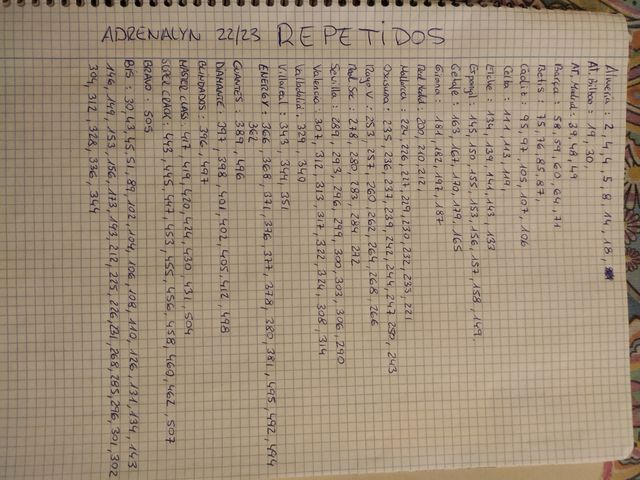 ADRENALYN 22/23 REPETIDOS
Almería: 2, 4, 4, 5, 8, 14, 18,
At. Bilbao: 19, 30,
At. Madrid: 39, 48, 49
Barça: 58, 59, 60, 64, 71
Betis: 75, 76, 85, 87,
Cádiz: 95, 97, 105, 107, 106
Celta: 111, 113, 119,
Elche: 134, 139, 141, 143, 133
Espanyol: 145, 150, 155, 153, 156, 157, 158, 149,
Getafe: 163, 167, 170, 179, 165
Girona: 181, 182, 197, 187
Real Madrid: 200, 210, 212,
Mallorca: 224, 226, 217, 219, 230, 232, 233, 221
Osasuna: 235, 236, 237, 239, 242, 244, 247, 250, 243
Rayo V.: 253, 257, 260, 262, 264, 268, 266
Real Soc: 278, 280, 283, 284, 272
Sevilla: 289, 293, 296, 299, 300, 303, 306, 290
Valencia: 307, 312, 313, 317, 322, 324, 308, 314
Valladolid: 329, 340
Villareal: 343, 344, 351
ENERGY: 366, 368, 371, 376, 377, 378, 380, 381, 495, 492, 494
362
GUANTES: 389, 496
DIAMANTE: 397, 398, 401, 402, 405, 412, 498
BLINDADOS: 396, 497
MASTER CLASS: 417, 419, 420, 424, 430, 431, 504
SUPER CRACK: 443, 445, 447, 453, 455, 456, 458, 460, 462, 507
BRAVO: 505
BIS: 30, 43, 45, 51, 89, 102, 104, 106, 108, 110, 126, 131, 134, 143
146, 149, 153, 156, 173, 193, 212, 225, 226, 231, 268, 285, 296, 301, 302
304, 312, 328, 336, 344